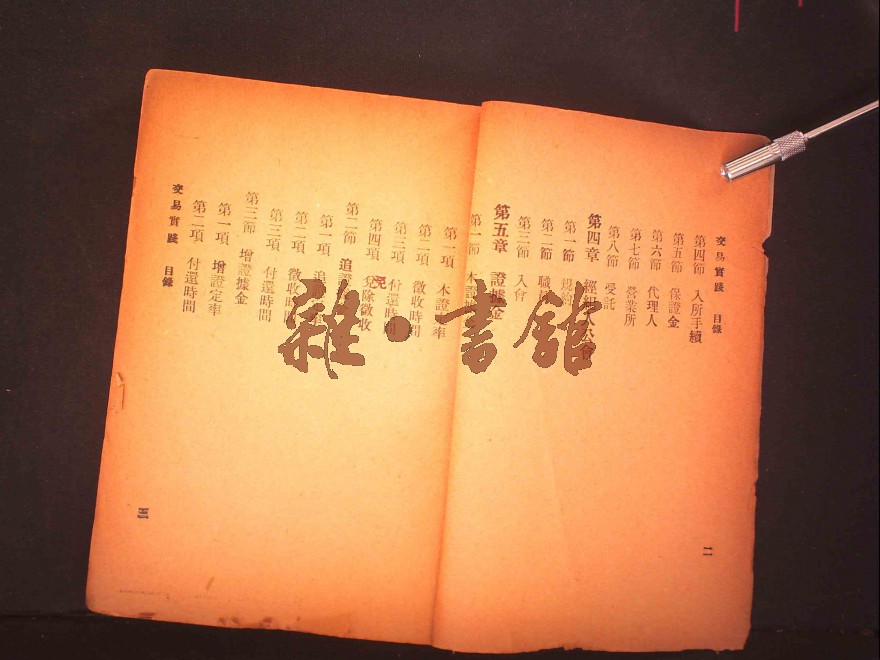 交易實踐　目錄
第四節　入所手續
第五節　保證金
第六節　代理人
第七節　營業所
第八節　受託
第四章　經紀人公會
第一節　規約
第二節　職
第三節　入會
第五章　證據金
第一節　本證
第一項　本證定率
第二項　徵收時間
第三項　付還時間
第四項　免除徵收
第二節　追證
第一項　追
第二項　徵收時間
第三項　付還時間
第三節　增證據金
第一項　增證定率
第二項　付還時間
交易實踐　目錄
二
三
雜·書館